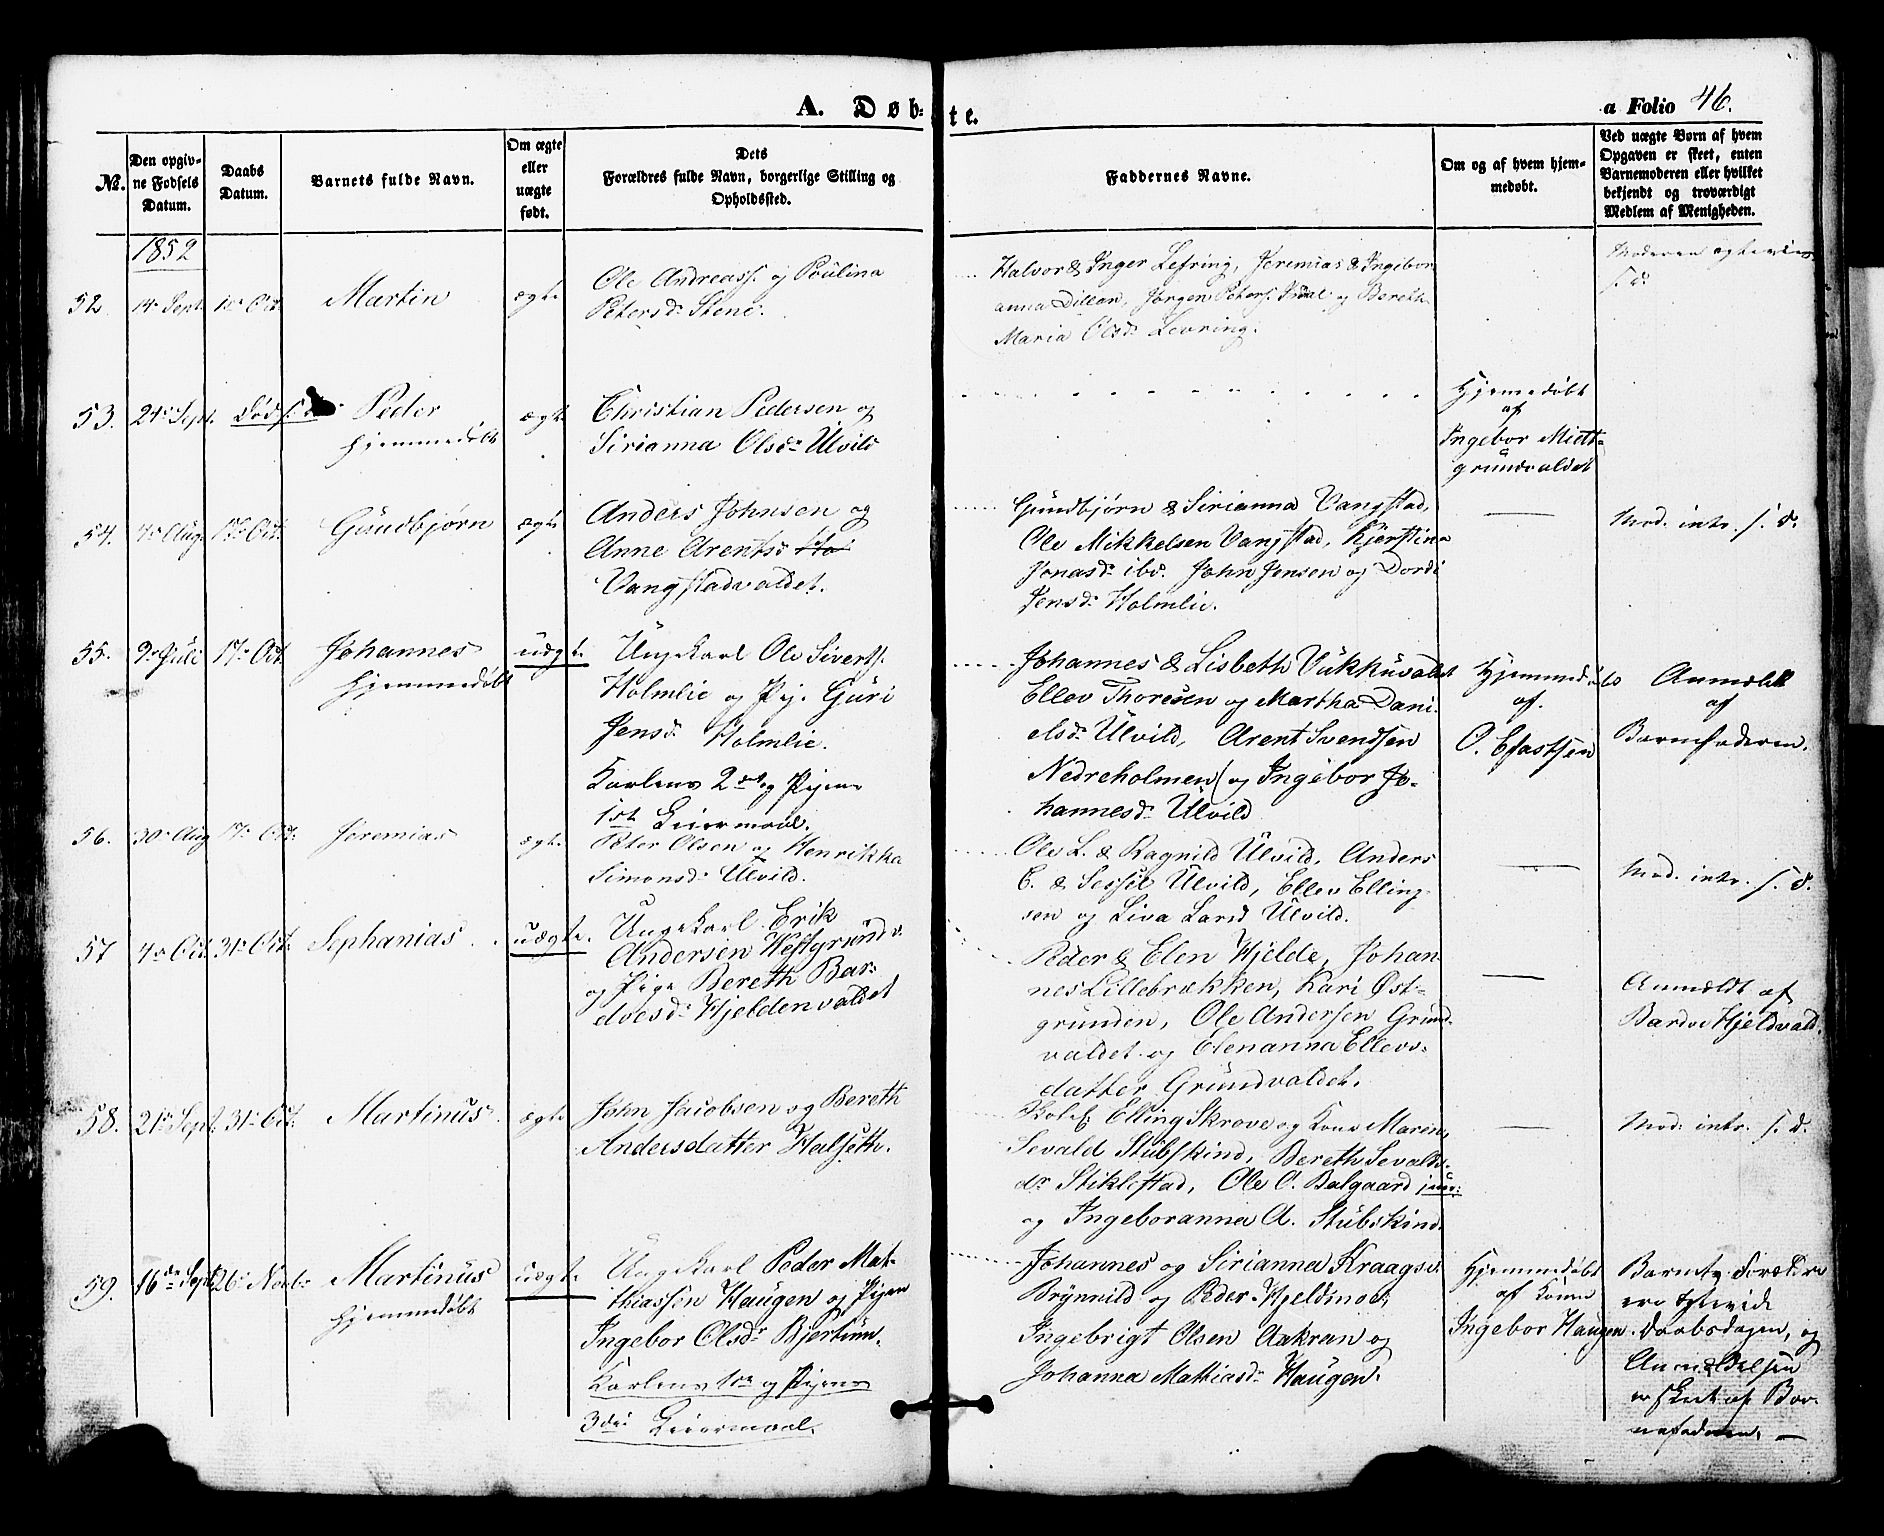 A. Døb-te.
a Folio 46.
№.
Den opgivne Fødsels Datum.
Daabs Datum.
Barnets fulde Navn.
Om ægte eller uægte født.
Dets Forældres fulde Navn, borgerlige Stilling og Opholdssted.
Faddernes Navne.
Om og af hvem hjemmedøbt.
Ved uægte Børn af hvem Opgaven er skeet, enten Barnemoderen eller hvilket bekjendt og troværdigt Medlem af Menigheden.
1852
52. 14de Sept. Oct. Martin ægte
Ole Andreass. og Paulina
Petersdr Stene.
Halvor & Inger Lefring, Jeremias & Ingebor
anna Dillan, Jørgen Peters. og Bereth
Maria Olsdr Levring.
53. 24de Sept. død Peder ægte
hjemmedøbt
Christian Pedersen og
Sirianna Olsdr Ulvild
Hjemedøbt
af
Ingebor Miett-
grundvaldet
54. 4de Aug. 17de Oct. Gundbjørn ægte
Anders Johnsen og
Anne Arentsd
Vangstadvaldet.
Gundbjørn & Sirianna Vangstad,
Ole Mikkelsen Vangstad, Kjerstina
Jonasdr ibd. John Jensen og Dordi
Jensdr Holmlie.
Mod. intr. s. d.
55. 9de Juli 17de Oct. Johannes uægte
hjemmedøbt
Ungekarl Ole Siverts.
Holmlie og Pg. Guri
Jensdr Holmlie.
Karlens 2det og Pigens
1ste Leiermaal.
Johannes & Lisbeth Vukkuvaldet
Ellev Thoresen og Martha Dani-
elsdr Ulvild, Arent Svendsen
Nedreholmen, og Ingebor Jo-
hannesdr Ulvild
Hjemmedøbt
af
O. Efastsen
Anmeldt
af
Barnefaderen.
56. 30te Aug. 17de Oct. Jeremias ægte
Peter Olsen og Henrikka
Simonsdr Ulvild.
Ole L. & Ragnild Ulvild, Anders
E. & Sessil Ulvild, Ellev Elling-
sen og Liva Larsd Ulvild.
Mod. intr. s. d.
57 4de Oct. 31te Oct. Sephanias uægte
Ungekarl Erik
Andersen Vestgrundv.
og Pige Bereth Bar-
doesdr Hjeldenvaldet
Peder & Elen Hjelde, Johan-
nes Lillebrækken, Kari Øst-
grunden, Ole Andersen Grund-
valdet og Elenanna Ellevs-
datter Grundvaldet.
Anmeldt af
Bardoe Hjeldvald.
58. 21de Sept. 31te Oct. Martinus ægte
John Jacobsen og Bereth
Andersdatter Halseth.
Elling Skrove og Kone Maren,
Sevald Stubskind, Bereth Sevalds-
dr Stiklestad, Ole O. Balgaard jun:
og Ingeboranna A. Stubskind.
Mod. intr. s. d.
59. 16de Sept. 26de Novbr Martinus uægte
hjemmedøbt
Ungekarl Peder Mat-
thiassen Haugen og Pigen
Ingebor Olsdr Bjertum.
Karlens 1ste og Pigens
3die Leiermaal.
Johannes og Sirianna Kraagsv.
Brynvild og Peder Hjeldmoe,
Ingebrigt Olsen Aakran og
Johanna Mathiasdr Haugen.
Hjemmedøbt
af Konen
Ingebor Haugen.
Barnets Forældre
ere
Daabsdagen, og
Anmeldelsen
er skeet af Bar-
nefaderen. —